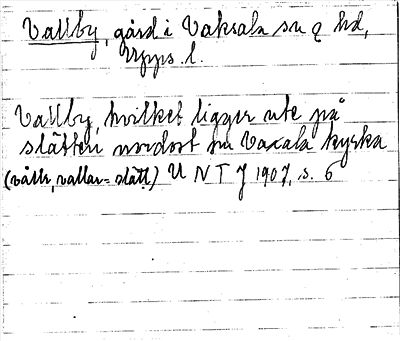 Vallby, gård i Vaksala sn o hd,
Upps. l.
Vallby, hvilket ligger ute på
slätten nordost om Vaxala kyrka
(vållr, vallar = slätt) U N T J 1907, s. 6